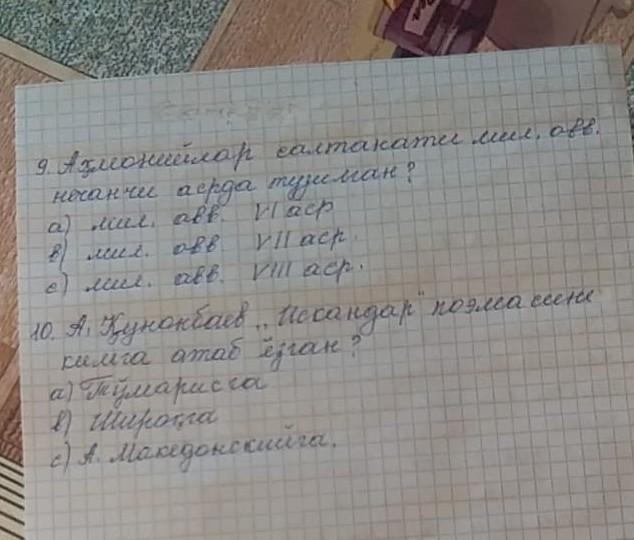 9. Аҳмонийлар салтанати мил. авв.
нечанчи асрда тузилган?
а) мил. авв. VI аср
в) мил. авв. VII аср.
с) мил. авв. VIII аср.
10. А. Қунонбаев „Искандар" поэмасини
кимга атаб ёзган?
а) Тўмарисга
в) Широққа
с) А. Македонскийга.